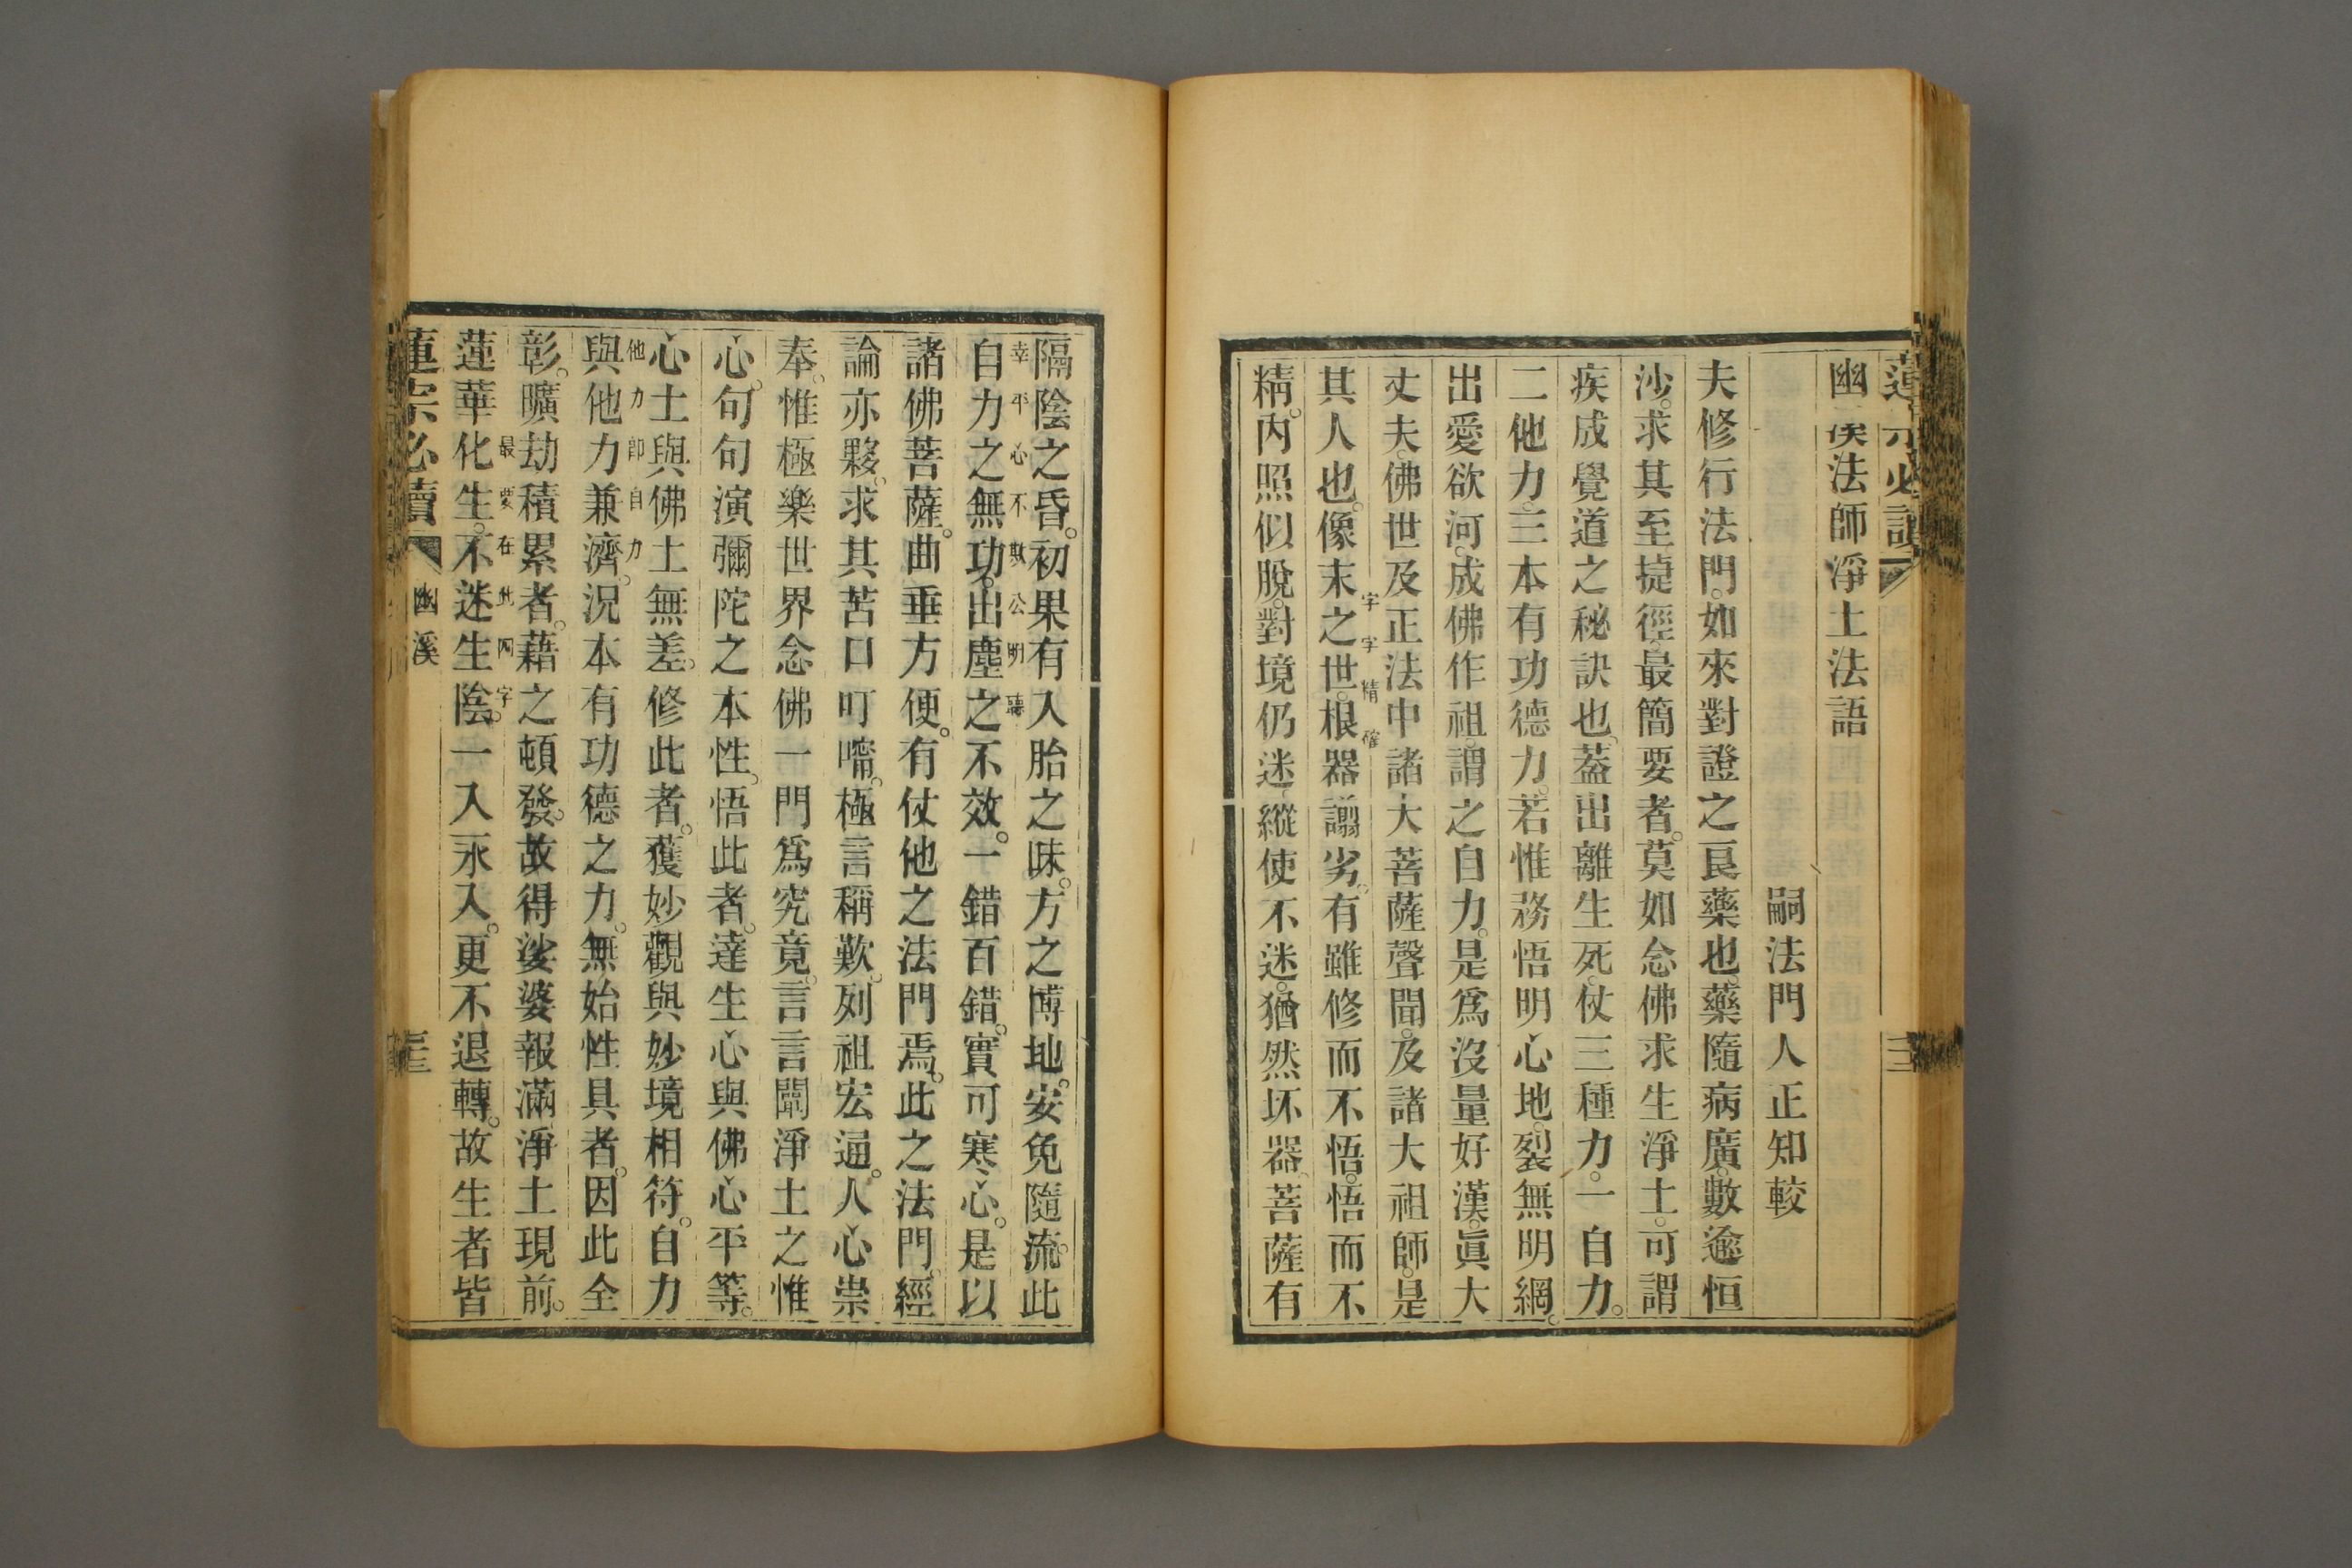 幽谿法師淨土法語
嗣法門人正知較
夫修行法門。如來對證之良藥也。藥隨病廣。數逾恒
沙。求其至捷徑。最簡要者。莫如念佛求生淨土。可謂
疾成覺道之秘訣也。蓋出離生死。仗三種力。一自力。
二他力。三本有功德力。若惟務悟明心地。裂無明網。
出愛欲河。成佛作祖。謂之自力。是爲沒量好漢。眞大
丈夫。佛世及正法中諸大菩薩聲聞。及諸大祖師。是
字字精確
其人也。像末之世。根器謭劣。有雖修而不悟。悟而不
精。內照似脫。對境仍迷。縱使不迷。猶然坏器。菩薩有
隔陰之昏。初果有入胎之昧。方之博地。安免隨流。此
幸平心不欺公明聽
自力之無功。出塵之不效。一錯百錯。實可寒心。是以
諸佛菩薩。曲垂方便。有仗他之法門焉。此之法門。經
論亦夥。求其苦口叮嚀。極言稱歎。列祖宏通。人心崇
奉。惟極樂世界念佛一門爲究竟。言言闡淨土之惟
心。句句演彌陀之本性。悟此者。達生心與佛心平等。
心土與佛土無差。修此者。獲妙觀與妙境相符。自力
他力卽自力
與他力兼濟。況本有功德之力。無始性具者。因此全
彰。曠劫積累者。藉之頓發。故得娑婆報滿。淨土現前。
最要在此四字
蓮華化生。不迷生陰。一入永入。更不退轉。故生者皆
蓮宗必讀
幽溪